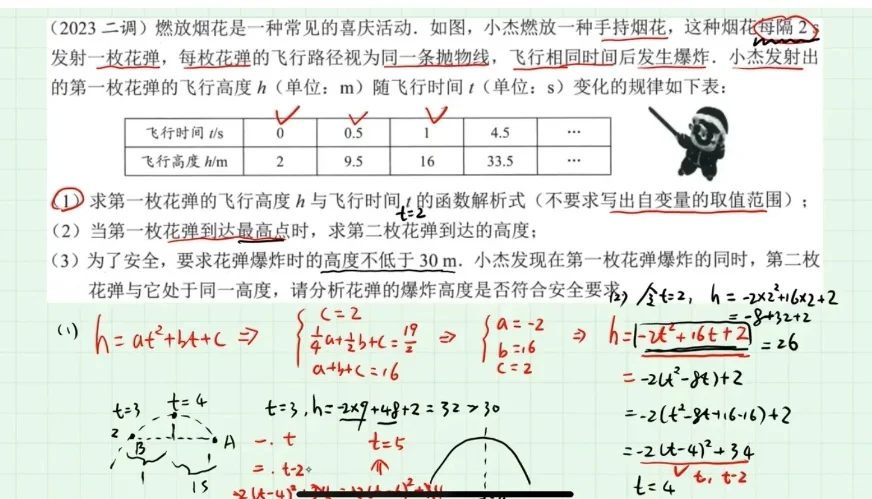 （2023 二调）燃放烟花是一种常见的喜庆活动．如图，小杰燃放一种手持烟花，这种烟花每隔 2 s
发射一枚花弹，每枚花弹的飞行路径视为同一条抛物线，飞行相同时间后发生爆炸．小杰发射出
的第一枚花弹的飞行高度 h（单位：m）随飞行时间 t（单位：s）变化的规律如下表：
飞行时间 t/s 0 0.5 1 4.5 …
飞行高度 h/m 2 9.5 16 33.5 …
(1) 求第一枚花弹的飞行高度 h 与飞行时间 t 的函数解析式（不要求写出自变量的取值范围）；
t=2
（2）当第一枚花弹到达最高点时，求第二枚花弹到达的高度；
（3）为了安全，要求花弹爆炸时的高度不低于 30 m．小杰发现在第一枚花弹爆炸的同时，第二枚
花弹与它处于同一高度，请分析花弹的爆炸高度是否符合安全要求．
(2) 令t=2, h=-2×2²+16×2+2
=-8+32+2
=26
(1) h=at²+bt+c ⇒ { c=2
1/4a+1/2b+c=19/2
a+b+c=16
⇒ { a=-2
b=16
c=2
⇒ h=-2t²+16t+2
=-2(t²-8t)+2
=-2(t²-8t+16-16)+2
=-2(t-4)²+34
t=4
t, t-2
t=3 t=4
2 B A
1 1s
t=3, h=-2×9+48+2=32>30
一. t t=5
二. t-2 ⇑